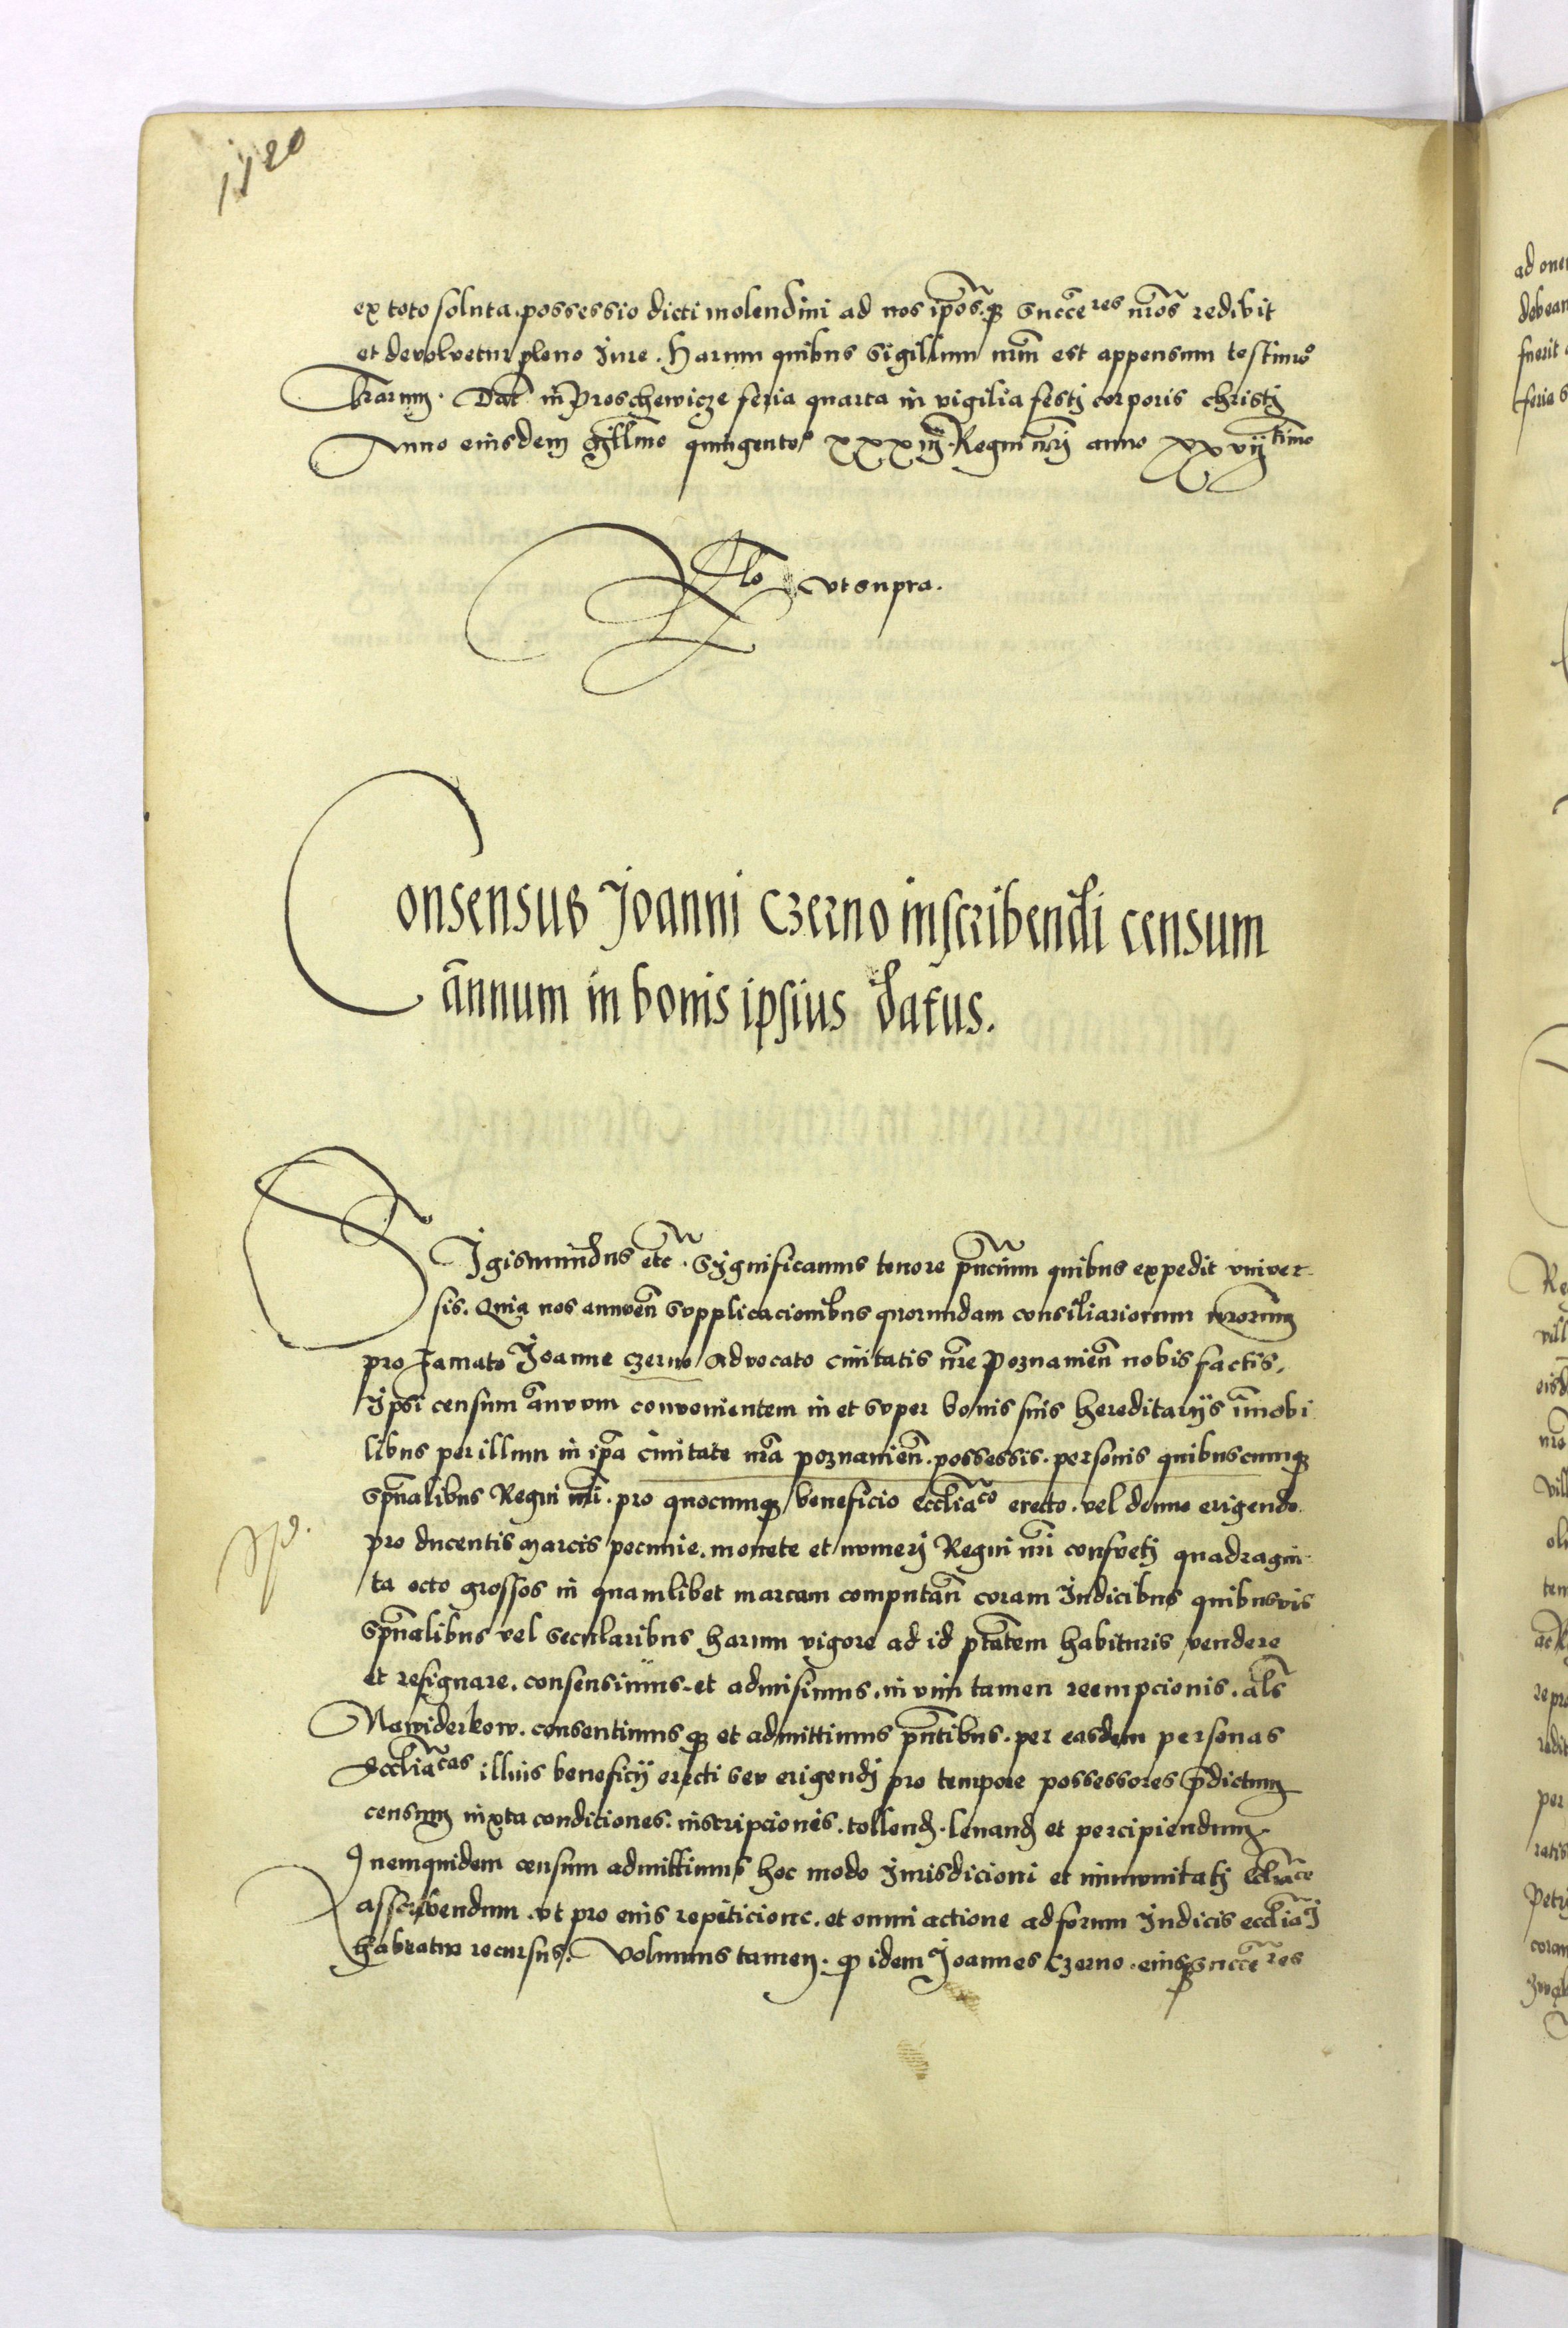 1120
ex toto soluta. possessio dicti molendini ad nos ip̃os.q₃ succẽres nr̃os redibit
et devolvetur pleno Iure. Harum quibus sigillum nr̃m est appensum testimo°
l̃rarum. Dat̃ in Proschewicze feria quarta in vigilia festj corporis christj
Anno eiusdem mill̃mo quingento° xxxiij. Regni nr̃j anno xxvijtimo
Rl̃o vt supra.
Consensus Joanni Czerno inscribendi censum
ãnnum in bonis ipsius datus.
SIgismundus etc̃. Significamus tenore pñcium quibus expedit vniver-
sis. Quia nos annueñ supplicacionibus quorundam consiliariorum nr̃orum
pro famato Joanne czerno Advocato civitatis nr̃e Poznanieñ nobis factis,
ipsi censum ãnuum convenientem in et super bonis suis hereditarijs im̃obi
libus per illum in ip̃a civitate nr̃a poznanieñ. possessis. personis quibuscumq₃
Spũalibus Regni nr̃i. pro quocumq₃ beneficio eccl̃iaco erecto. vel denuo erigendo.
pro ducentis Marcis pecunie. monete et numerj Regni nr̃i consuetj quadragin-
ta octo grossos in quamlibet marcam computañ coram Iudicibus quibusvis
Spũalibus vel secularibus harum vigore ad id pt̃atem habituris vendere
et resignare. consensimus et admisimus. in vim tamen reempcionis. als̃
Nawiderkow. consentimusq₃ et admittimus pñtibus. per easdem personas
Eccl̃iacas illius beneficij erecti seu erigendj pro tempore possessores p̃dictum
censum iuxta condiciones. inscripcionis. tollend. levand et percipiendum.
Quemquidem censum admittimus hoc modo Iurisdicioni et immunitatj eccl̃iace
asscribendum. vt pro eius repeticione. et omni actione ad forum Iudicis eccl̃iacj
habeatur recursus. Volumus tamen. q̃ idem Joannes Czerno. eiusq₃ succẽres